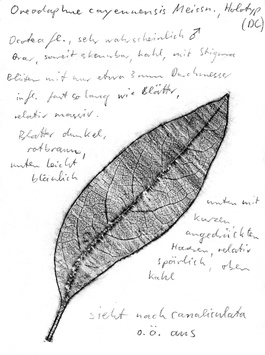 Oreodaphne cayennensis Meissn., Holotyp
(DC)
Ocotea fl., sehr wahrscheinlich ♂
Ovar, soweit erkennbar, kahl, mit Stigma
Blüten mit nur etwa 3 mm Durchmesser
infl. fast so lang wie Blätter,
relativ massiv.
Blätter dunkel,
rotbraun,
unten leicht
bläulich
unten mit
kurzen
angedrückten
Haaren, relativ
spärlich, oben
kahl
sieht nach canaliculata
o.ä. aus